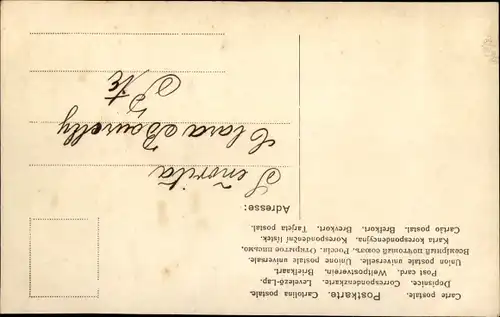 Carte postale. Postkarte. Cartolina postale.
Dopisnice. Correspondenzkarte. Levelező-Lap.
Post card. Weltpostverein. Briefkaart.
Union postale universelle. Unione postale universale.
Всемірный почтовый союзъ. Открытое письмо.
Karta korespondencyjna. Korespondenční lístek.
Cartão postal. Brefkort. Brevkort. Tarjeta postal.
Adresse:
Señorita
Clara
Pte